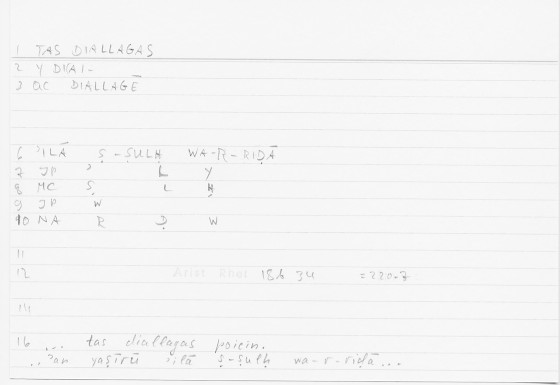 1 TAS DIALLAGAS
2 Y DIAI-
3 QC DIALLAGĒ
6 ʾILĀ Ṣ-ṢULḤ WA-R-RIḌĀ
7 JP ʾ L Y
8 MC Ṣ L Ḥ
9 JP W
10 NA R Ḍ W
11
12 Arist Rhet 18b 34 = 220.7
14
16 ... tas diallagas poiein.
..ʾan yaṣīrū ʾilā ṣ-ṣulḥ wa-r-riḍā...